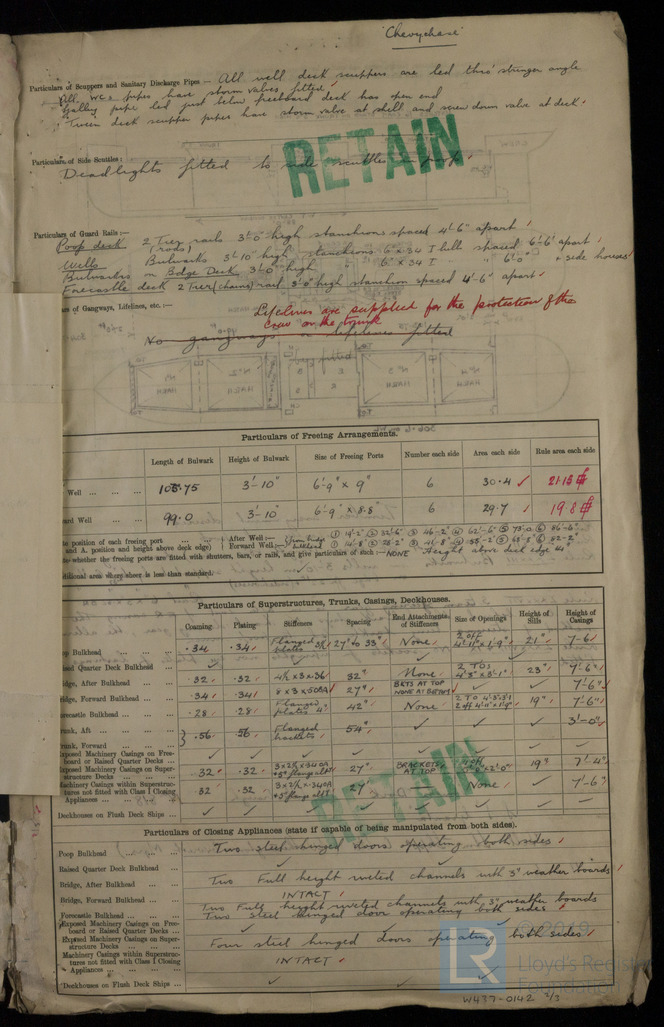 'Chevychase'
Particulars of Scuppers and Sanitary Discharge Pipes :— All well deck scuppers are led thro' stringer angle
All WCs pipes have storm valves fitted
Galley pipe led just below freeboard deck has open end
Tween deck scupper pipes have storm valve at shell and screw down valve at deck.
RETAIN
Particulars of Side Scuttles :—
Deadlights fitted to side scuttles in poop.
Particulars of Guard Rails :—
Poop deck 2 Tier rails 3'-0" high stanchions spaced 4'-6" apart
(rods)
Wells Bulwarks 3'-10" high stanchions 6" x 34 I bulb spaced 6'-6" apart
Bulwarks on Bdge Deck 3'-0" high " 6" x 34 I " 6'-0" " side houses
Forecastle deck 2 Tier (chains) rail 3'-0" high stanchion spaced 4'-6" apart
rs of Gangways, Lifelines, etc. :—
Lifelines are supplied for the protection of the
crew on the trunk
No gangways or lifelines fitted
Particulars of Freeing Arrangements.
Length of Bulwark Height of Bulwark Size of Freeing Ports Number each side Area each side Rule area each side
Well 105.75 3'-10" 6'-9" x 9" 6 30.4 21.15
ard Well 99.0 3'-10" 6'-9" x 8.8 6 29.7 19.8
te position of each freeing port After Well :—
and A. position and height above deck edge) Forward Well :—
te whether the freeing ports are fitted with shutters, bars, or rails, and give particulars of such :— NONE Height above deck edge
ditional area where sheer is less than standard.
Particulars of Superstructures, Trunks, Casings, Deckhouses.
Coaming. Plating. Stiffeners. Spacing. End Attachments of Stiffeners. Size of Openings. Height of Sills. Height of Casings.
op Bulkhead .34 .34 Flanged plates 27" to 33" None 2 off 4'-11" x 1'-9" 21" 7'-6
sed Quarter Deck Bulkhead
dge, After Bulkhead .32 .32 4½ x 3 x 36 32" None 23" 7'-6"
ridge, Forward Bulkhead .34 .34 8 x 3 x 50BA 27" BKTS AT TOP NONE AT BOTTOM 7'-6"
recastle Bulkhead .28 .28 Flanged plates 4" 42" None 19" 7'-6"
unk, Aft .56 56 Flanged brackets 54" 3'-0"
unk, Forward
xposed Machinery Casings on Free-
board or Raised Quarter Decks
xposed Machinery Casings on Super-
structure Decks .32 .32 27" BRACKETS AT TOP 19" 7'-4"
achinery Casings within Superstruc-
tures not fitted with Class I Closing
Appliances 32 .32 27" None 7'-6"
Deckhouses on Flush Deck Ships
RETAIN
Particulars of Closing Appliances (state if capable of being manipulated from both sides).
Poop Bulkhead Two steel hinged doors operating both sides
Raised Quarter Deck Bulkhead
Bridge, After Bulkhead Two Full height riveted channels with 3" weather boards
Bridge, Forward Bulkhead INTACT
Two Full height riveted channels with 3" weather boards
Forecastle Bulkhead Two steel hinged door operating both sides
Exposed Machinery Casings on Free-
board or Raised Quarter Decks
Exposed Machinery Casings on Super-
structure Decks Four steel hinged doors operating both sides
Machinery Casings within Superstruc-
tures not fitted with Class I Closing
Appliances INTACT
Deckhouses on Flush Deck Ships
LR
Lloyd's Register
Foundation
W437-0142 2/3